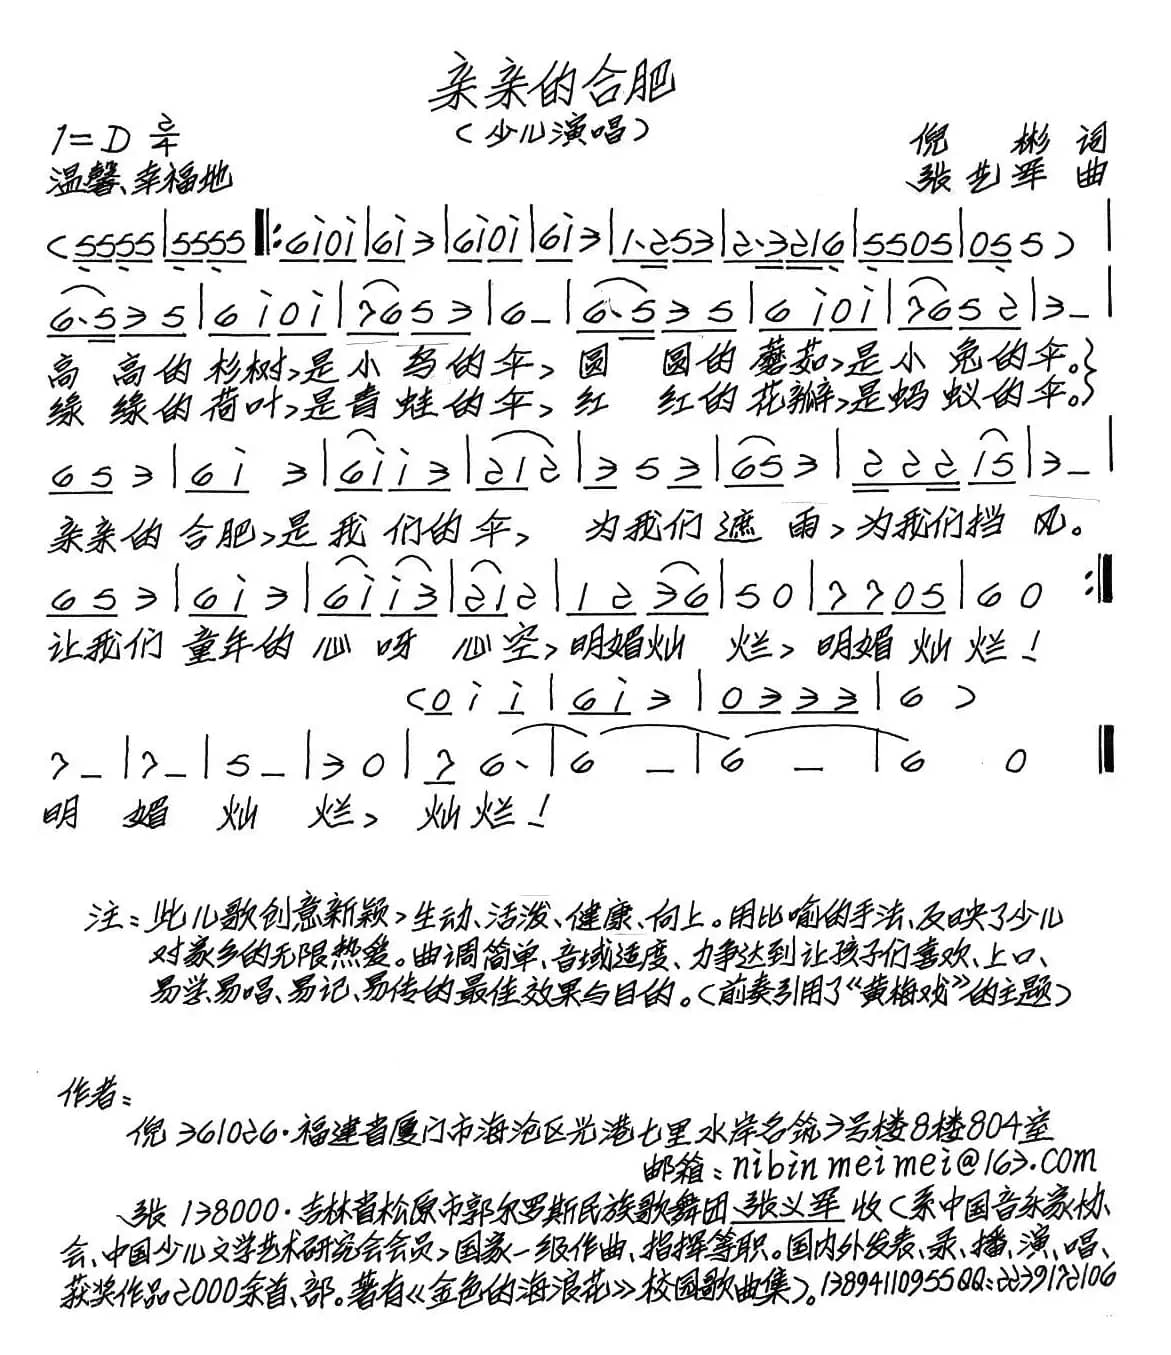 亲亲的合肥
(少儿演唱)
1=D 2/4
倪 彬 词
温馨、幸福地
张艺军 曲
(5555|5555‖:6i0i|6i3|6i0i|6i3|1·253|2·3216|5505|055)|
6·535|6i0i|7653|6-|6·535|6i0i|7652|3-|
高 高的杉树,是小 鸟的伞, 圆 圆的蘑茹,是小 兔的伞。}
绿 绿的荷叶,是青 蛙的伞, 红 红的花瓣,是蚂 蚁的伞。}
653|6i 3|6ii3|212|353|653|22215|3-|
亲亲的 合肥,是我 们的伞, 为我们遮 雨,为我们挡 风。
653|6i3|6ii3|212|1236|50|7705|60:‖
让我们 童年的 心 呀 心空,明媚灿 烂, 明媚灿烂!
(0ii|6i3|0333|6)
7-|7-|5-|30|76·|6-|6-|6 0‖
明 媚 灿 烂, 灿烂!
注:此儿歌创意新颖,生动、活泼、健康、向上。用比喻的手法、反映了少儿
对家乡的无限热爱。曲调简单、音域适度、力争达到让孩子们喜欢、上口、
易学易唱、易记、易传的最佳效果与目的。(前奏引用了《黄梅戏》的主题)
作者:
倪 361026·福建省厦门市海沧区兴港七里水岸名筑3号楼8楼804室
邮箱:nibinmeimei@163.com
张 138000·吉林省松原市郭尔罗斯民族歌舞团 张义军 收(系中国音乐家协
会、中国少儿文学艺术研究会会员,国家一级作曲、指挥等职。国内外发表、录、播、演、唱、
获奖作品2000余首、部。著有《金色的海浪花》校园歌曲集)。13894110955QQ:2239172106